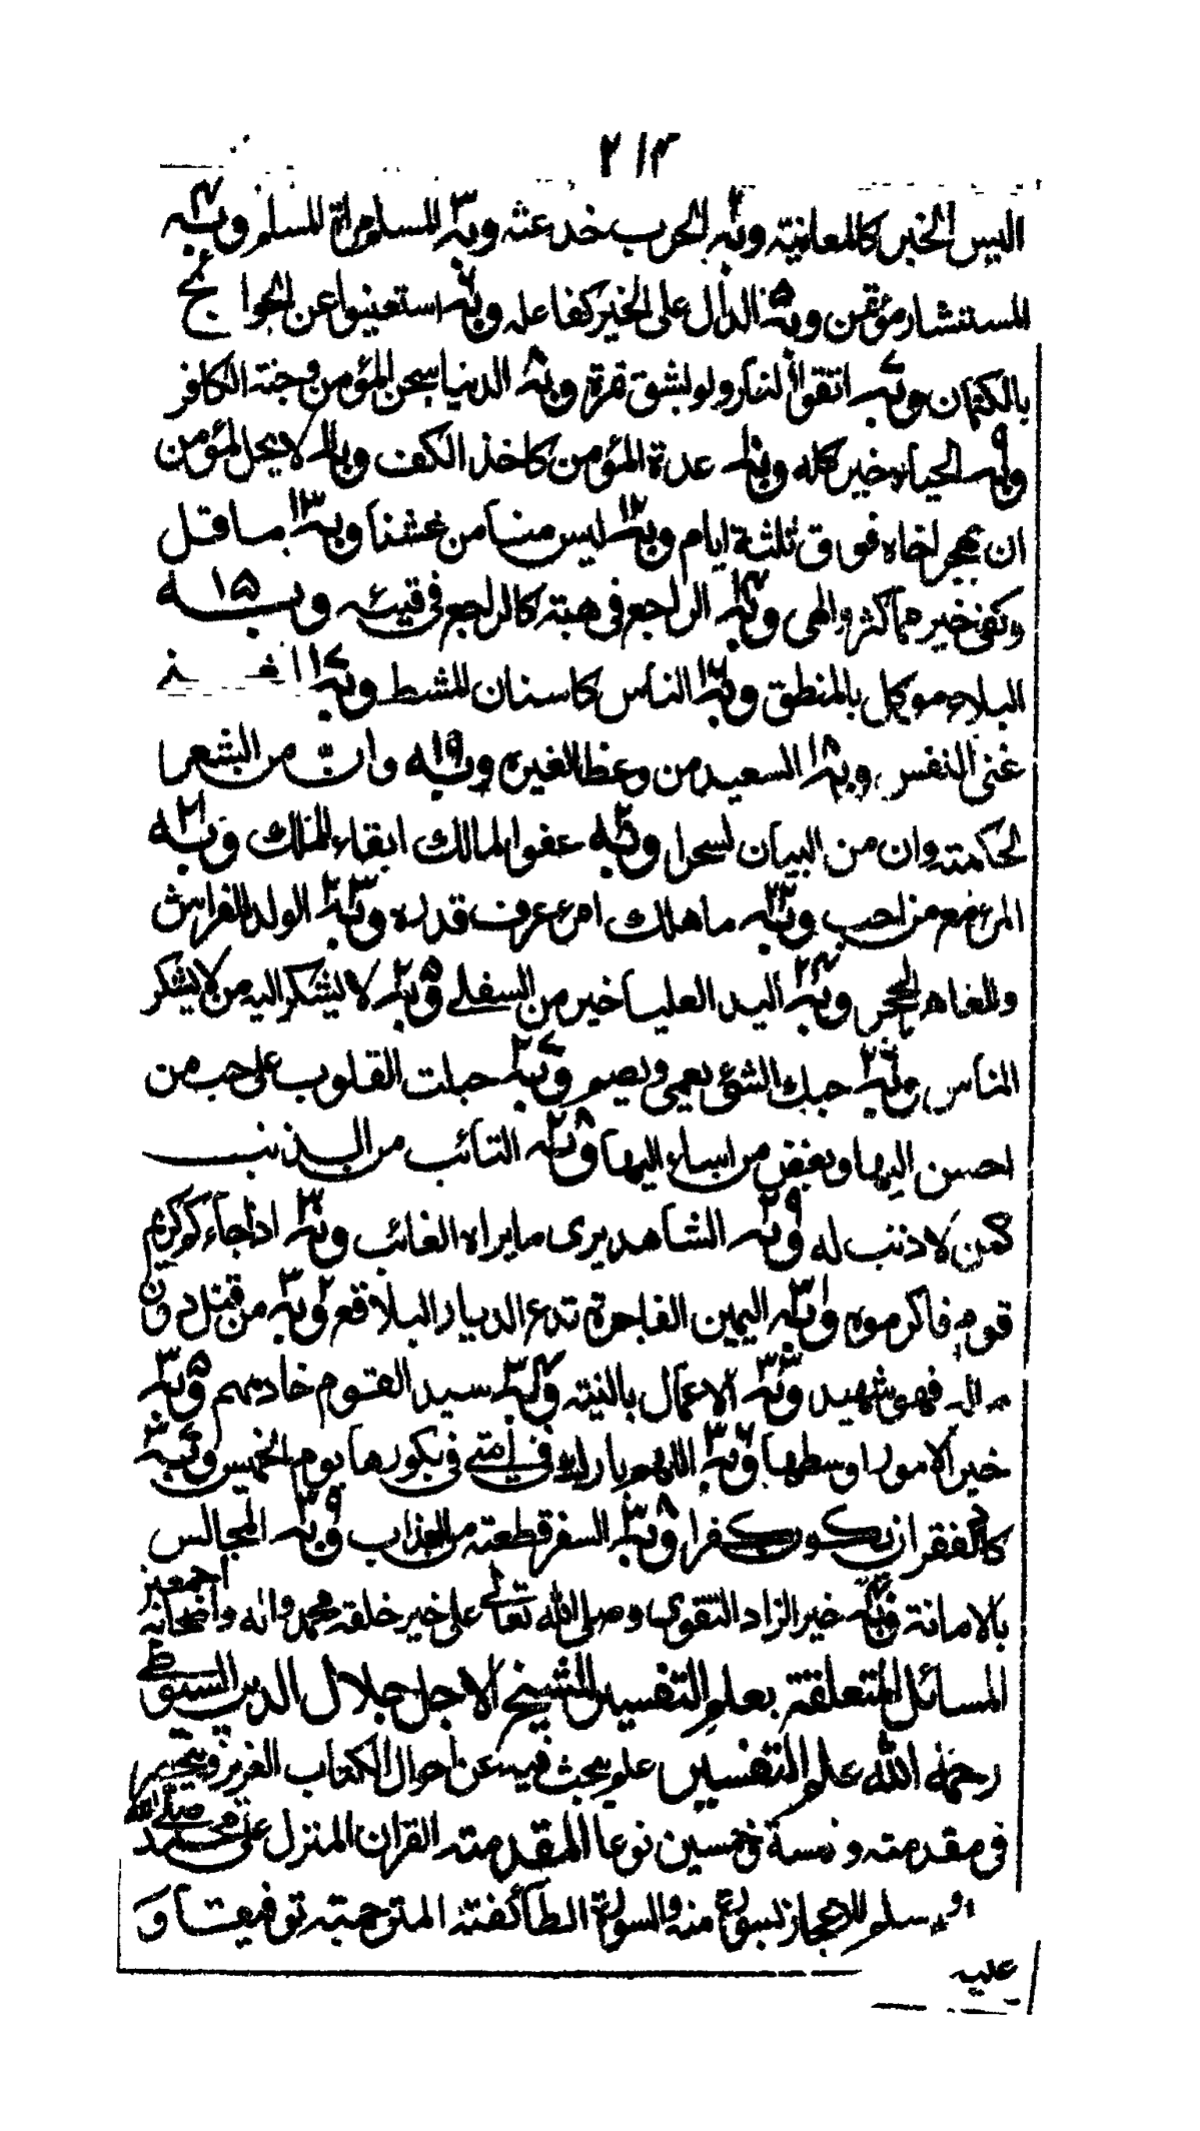 ٢١٤
اليس الخبر كالمعاينة وبه٢ الحرب خدعة وبه٣ المسلم مراة المسلم وبه٤
المستشار مؤتمن وبه٥ الدال على الخير كفاعله وبه٦ استعينوا عن الحوائج
بالكتمان وبه٧ اتقوا النار ولو بشق تمرة وبه٨ الدنيا سجن المؤمن وجنة الكافر
وبه٩ الحياء خير كله وبه١٠ عدة المؤمن كاخذ الكف وبه١١ لا يحل لمؤمن
ان يهجر اخاه فوق ثلثة ايام وبه١٢ ليس منا من غشنا وبه١٣ ما قل
وكفى خير مما كثر والهى وبه١٤ الراجع فى هبته كالراجع فى قيئه وبه١٥
البلاء موكل بالمنطق وبه١٦ الناس كاسنان المشط وبه١٧
غنى النفس وبه١٨ السعيد من وعظ لغيره وبه١٩ وان من الشعر ا
لحكمة وان من البيان لسحرا وبه٢٠ عفو المالك ابقاء للملك وبه٢١
المرء مع من احب وبه٢٢ ما هلك امرء عرف قدره وبه٢٣ الولد للفراش
وللعاهر الحجر وبه٢٤ اليد العليا خير من السفلى وبه٢٥ لا يشكر الله من لا يشكر
الناس وبه٢٦ حبك الشئ يعمى ويصم وبه٢٧ جبلت القلوب على حب من
احسن اليها وبغض من اساء اليها وبه٢٨ التائب من الذنب
كمن لا ذنب له وبه٢٩ الشاهد يرى ما يراه الغائب وبه٣٠ اذا جاءكم كريم
قوم فاكرموه وبه٣١ اليمين الفاجرة تدع الديار البلاقع وبه٣٢ من قتل دون
ماله فهو شهيد وبه٣٣ الاعمال بالنية وبه٣٤ سيد القوم خادمهم وبه٣٥
خير الامور اوسطها وبه٣٦ اللهم بارك فى امتى فى بكورها يوم الخميس وبه٣٧
كاد الفقر ان يكون كفرا وبه٣٨ السفر قطعة من العذاب وبه٣٩ المجالس
بالامانة وبه٤٠ خير الزاد التقوى وصلى الله تعالى على خير خلقه محمد واله واصحابه اجمعين
المسائل المتعلقة بعلم التفسير للشيخ الاجل جلال الدين السيوطى
رحمة الله علم التفسير علم يبحث فيه عن احوال الكتاب العزيز وينحصر
فى مقدمة و خمسة وخمسين نوعا المقدمة القران المنزل على محمد صلى الله
وسلم للاعجاز بسورة منه والسورة الطائفة المترجمة توقيفا و
عليه